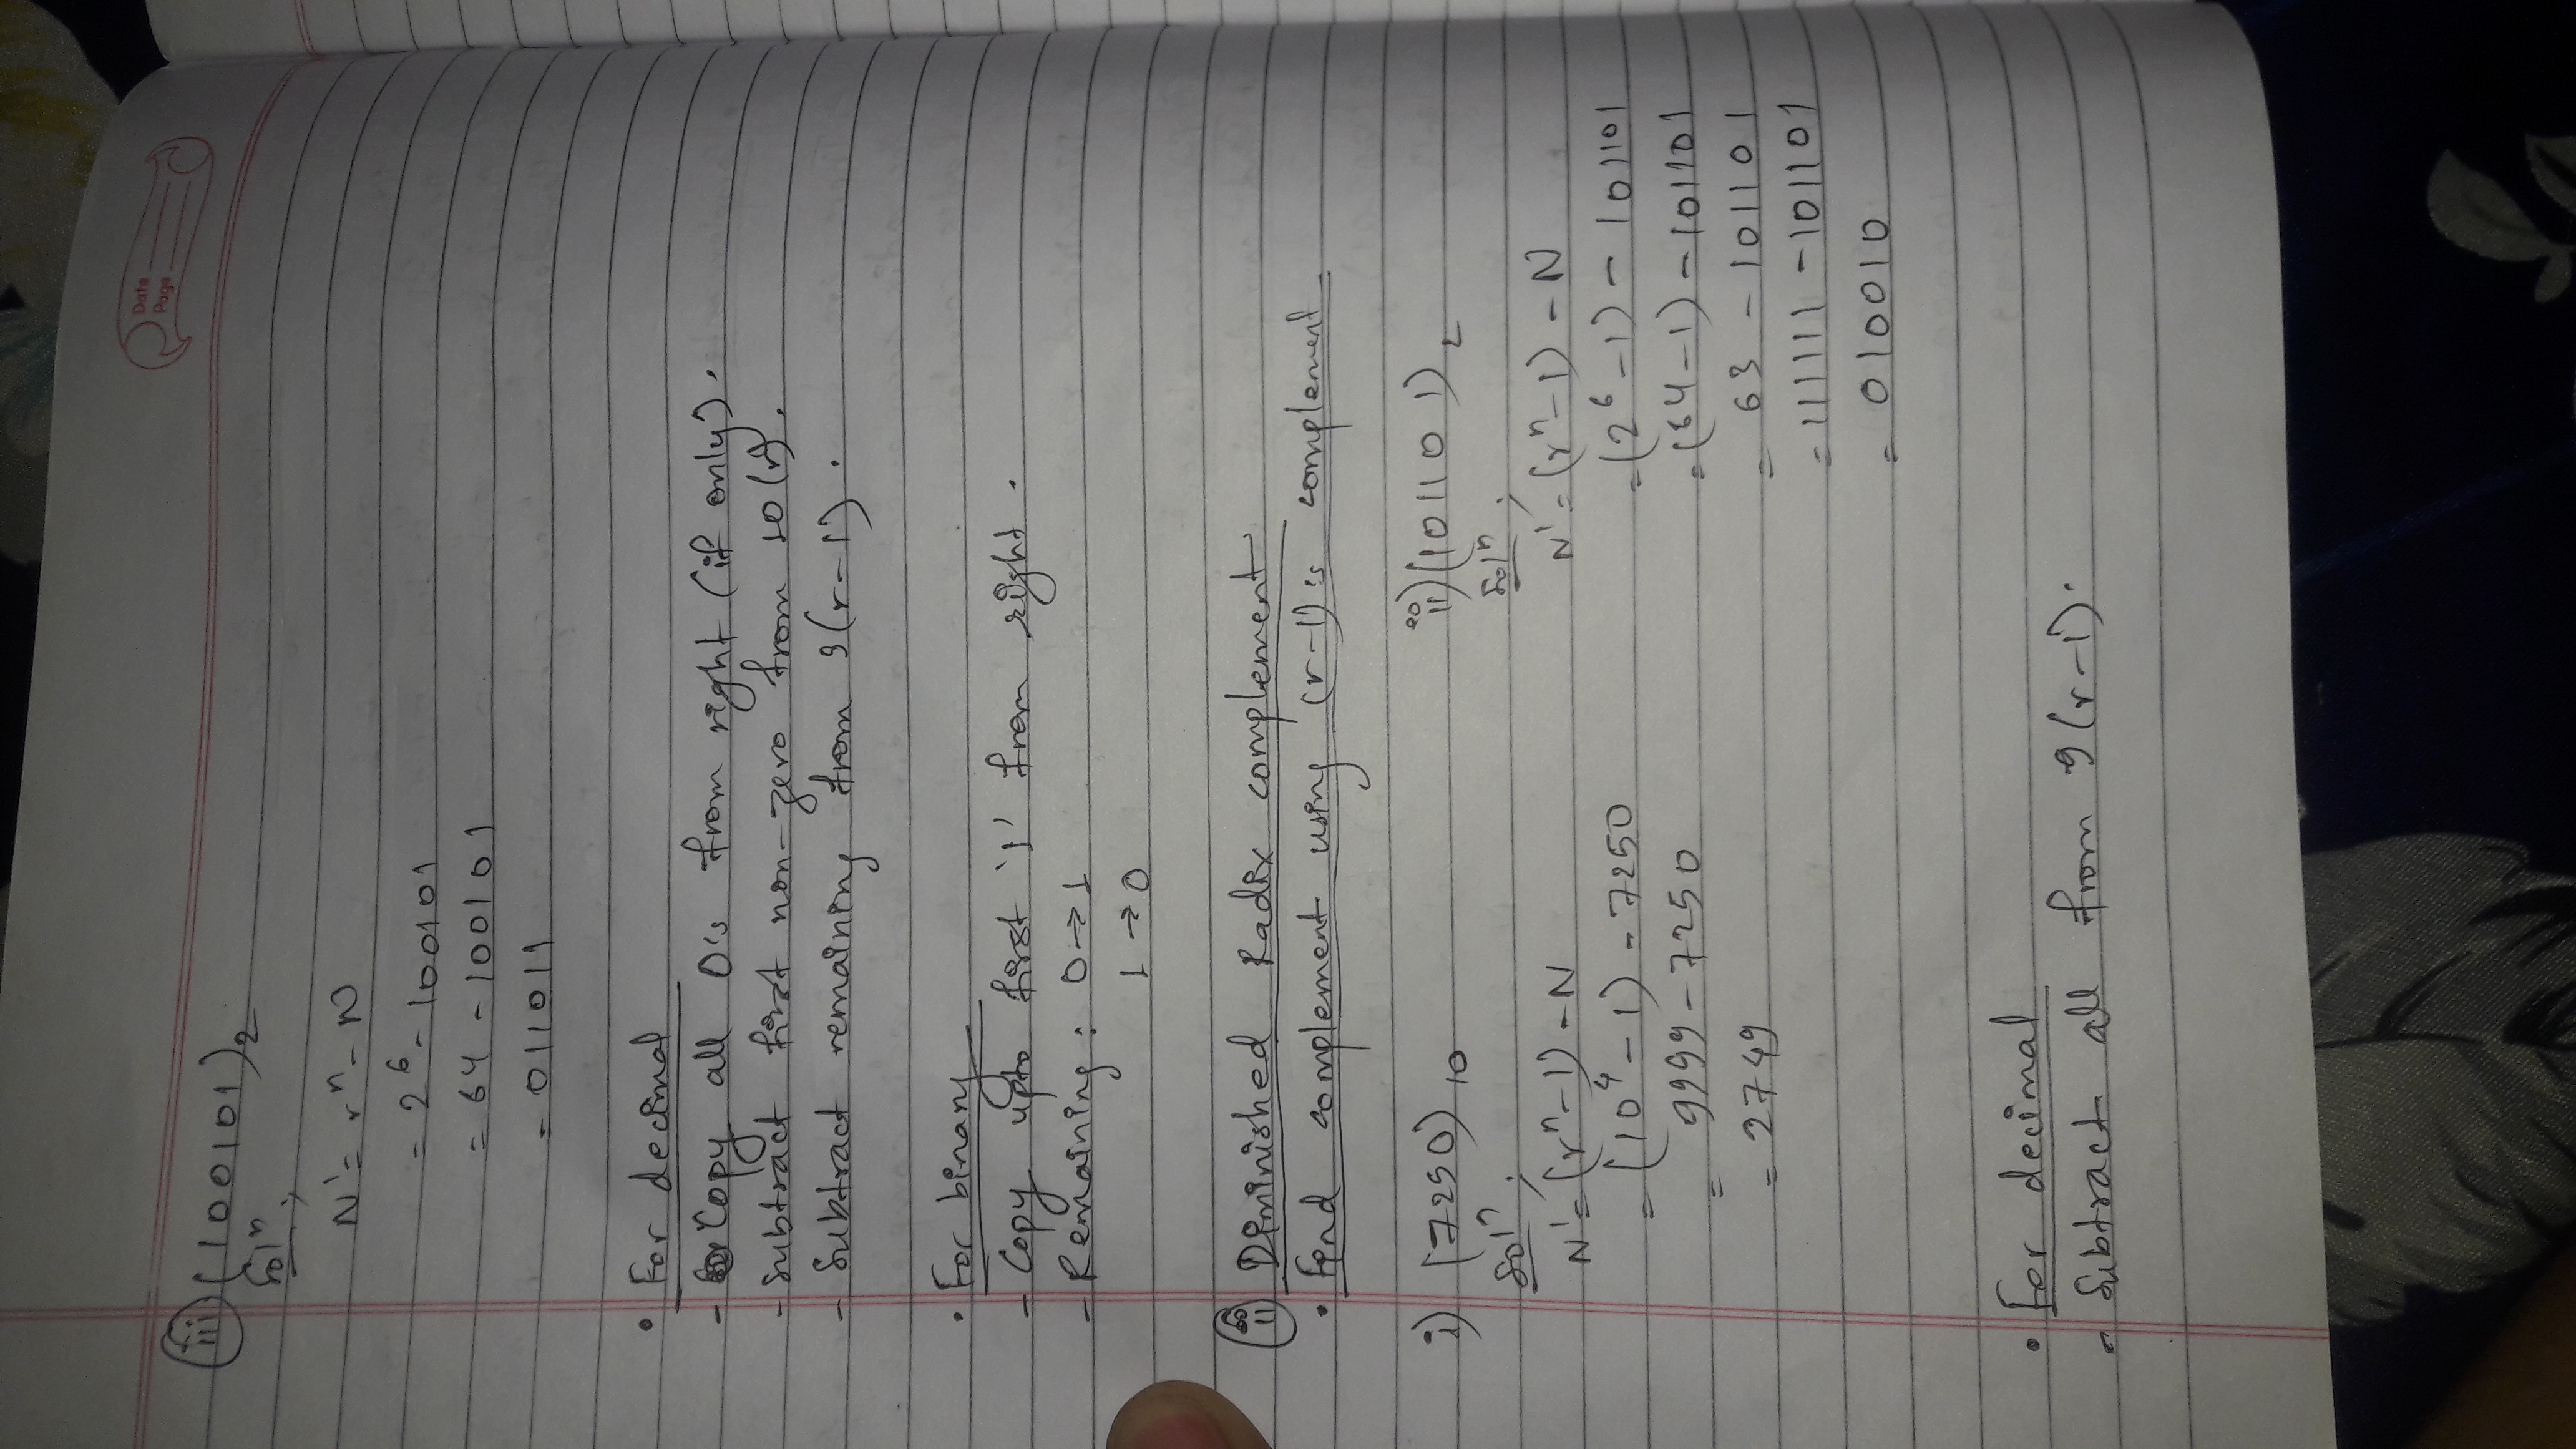 Date
Page
iii) (100101)₂
Solⁿ,
N' = rⁿ - N
= 2⁶ - 100101
= 64 - 100101
= 011011
• For decimal
- Copy all 0's from right (if only).
- Subtract first non-zero from 10(r).
- Subtract remaining from 9(r-1).
• For binary
- Copy upto first '1' from right.
- Remaining: 0→1
1→0
ii) Diminished Radix complement
• Find complement using (r-1)'s complement.
i) (7250)₁₀
Solⁿ,
N' = (rⁿ-1) - N
= (10⁴-1) - 7250
= 9999 - 7250
= 2749
ii) (101101)₂
Solⁿ,
N' = (rⁿ-1) - N
= (2⁶-1) - 101101
= (64-1) - 101101
= 63 - 101101
= 111111 - 101101
= 010010
• For decimal
- Subtract all from 9(r-1).